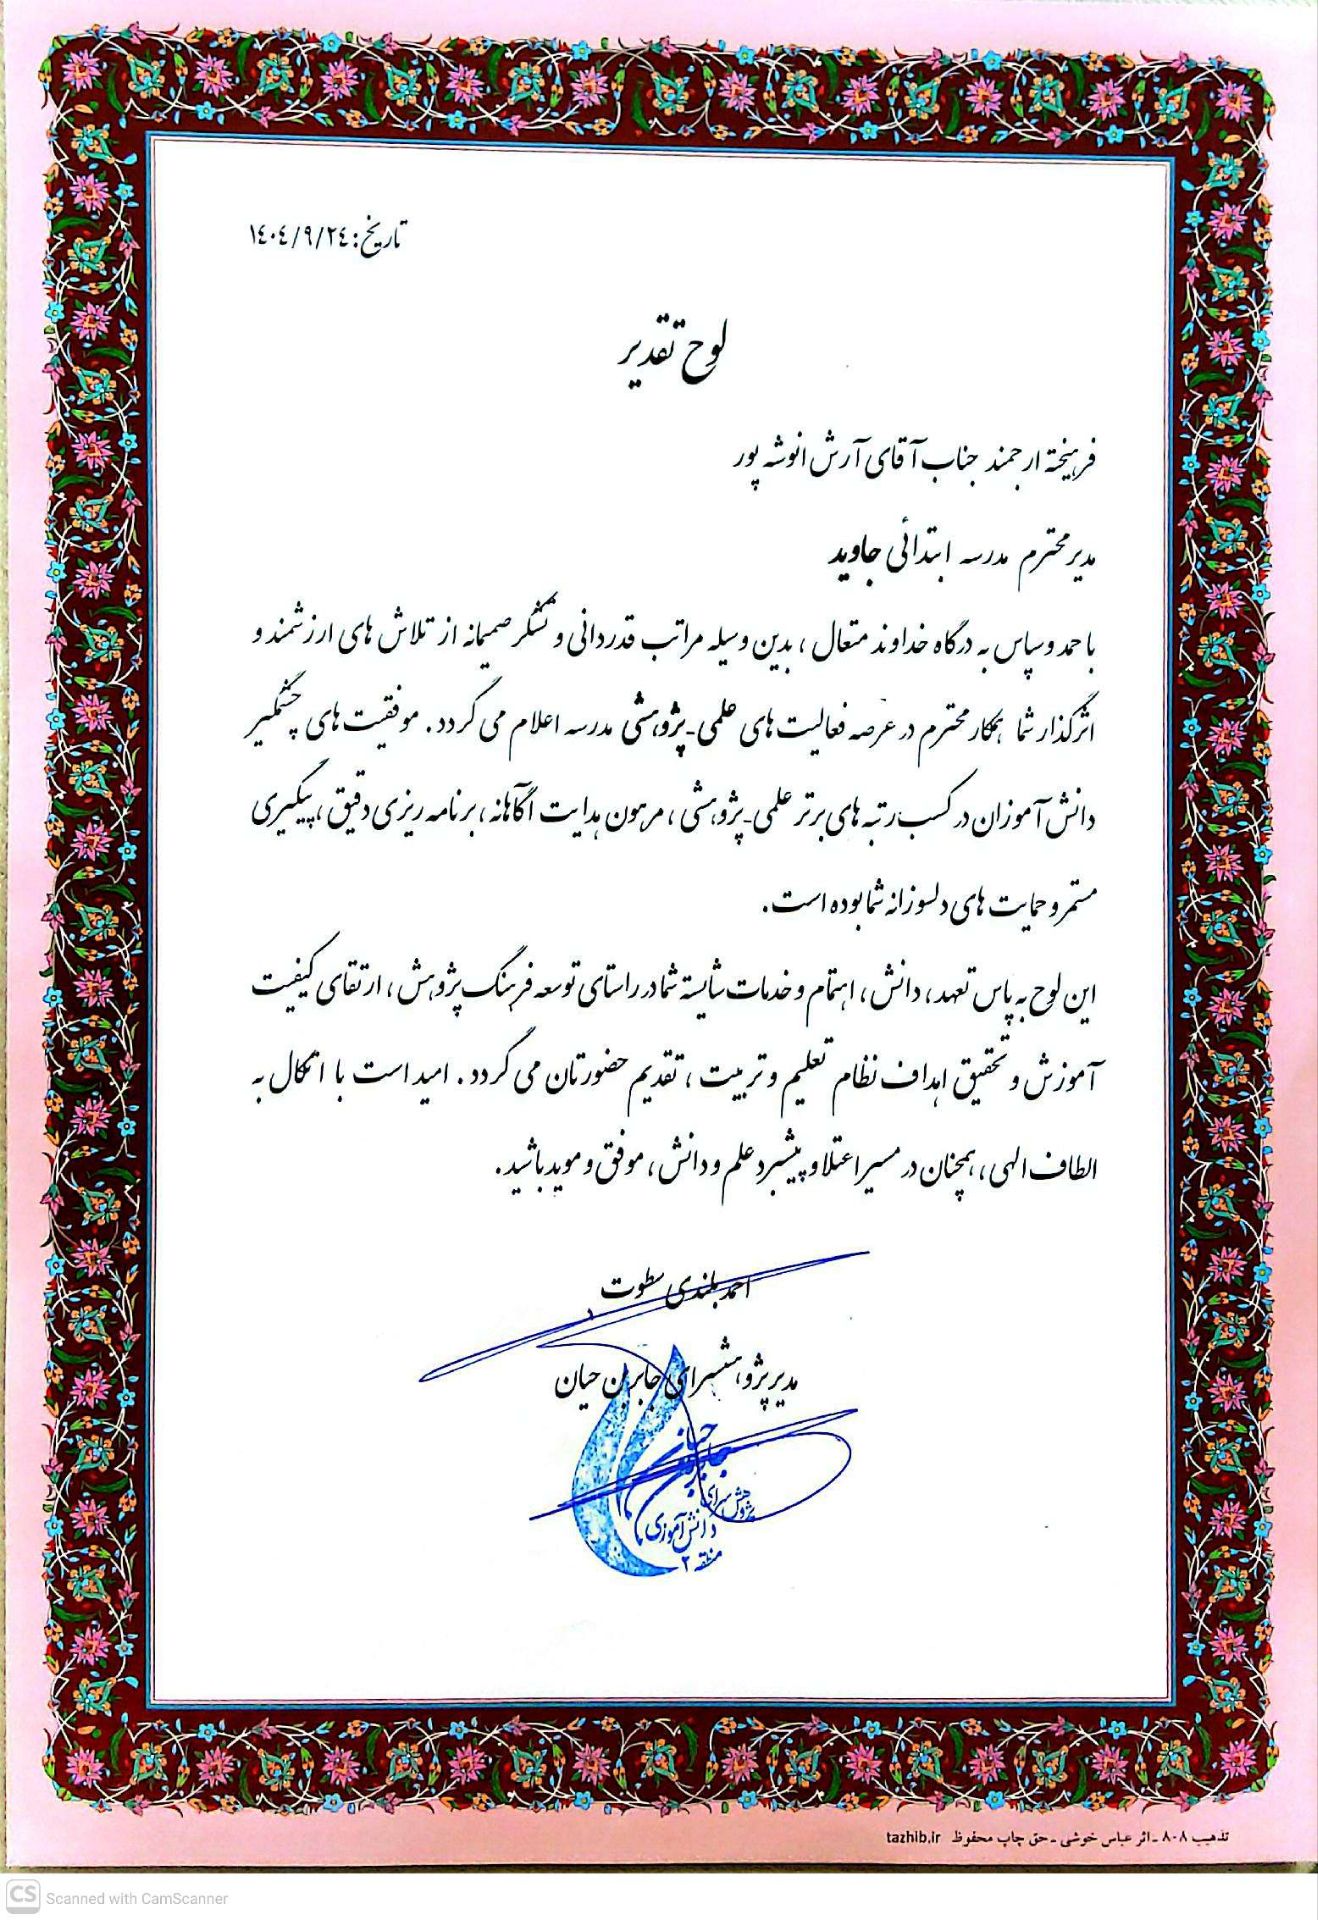 تاریخ: ۱۴۰۴/۹/۲۴
لوح تقدیر
فرهیخته ارجمند جناب آقای آرش انوشه پور
مدیر محترم مدرسه ابتدائی جاوید
با حمد و سپاس به درگاه خداوند متعال ، بدین وسیله مراتب قدردانی و تشکر صمیمانه از تلاش های ارزشمند و
اثرگذار شما همکار محترم در عرصه فعالیت های علمی-پژوهشی مدرسه اعلام می گردد. موفقیت های چشمگیر
دانش آموزان در کسب رتبه های برتر علمی-پژوهشی ، مرهون هدایت آگاهانه، برنامه ریزی دقیق ، پیگیری
مستمر و حمایت های دلسوزانه شما بوده است.
این لوح به پاس تعهد، دانش ، اهتمام و خدمات شایسته شما در راستای توسعه فرهنگ پژوهش ، ارتقای کیفیت
آموزش و تحقیق اهداف نظام تعلیم و تربیت ، تقدیم حضورتان می گردد . امید است با اتکال به
الطاف الهی ، همچنان در مسیر اعتلا و پیشبرد علم و دانش ، موفق و موید باشید.
احمد بلندی سطوت
مدیر پژوهشسرای جابربن حیان
جابربن حیان
پژوهش سرای
دانش آموزی
منطقه ۲
تذهیب ۸۰۸ - اثر عباس خوشی - حق چاپ محفوظ tazhib.ir
CS Scanned with CamScanner